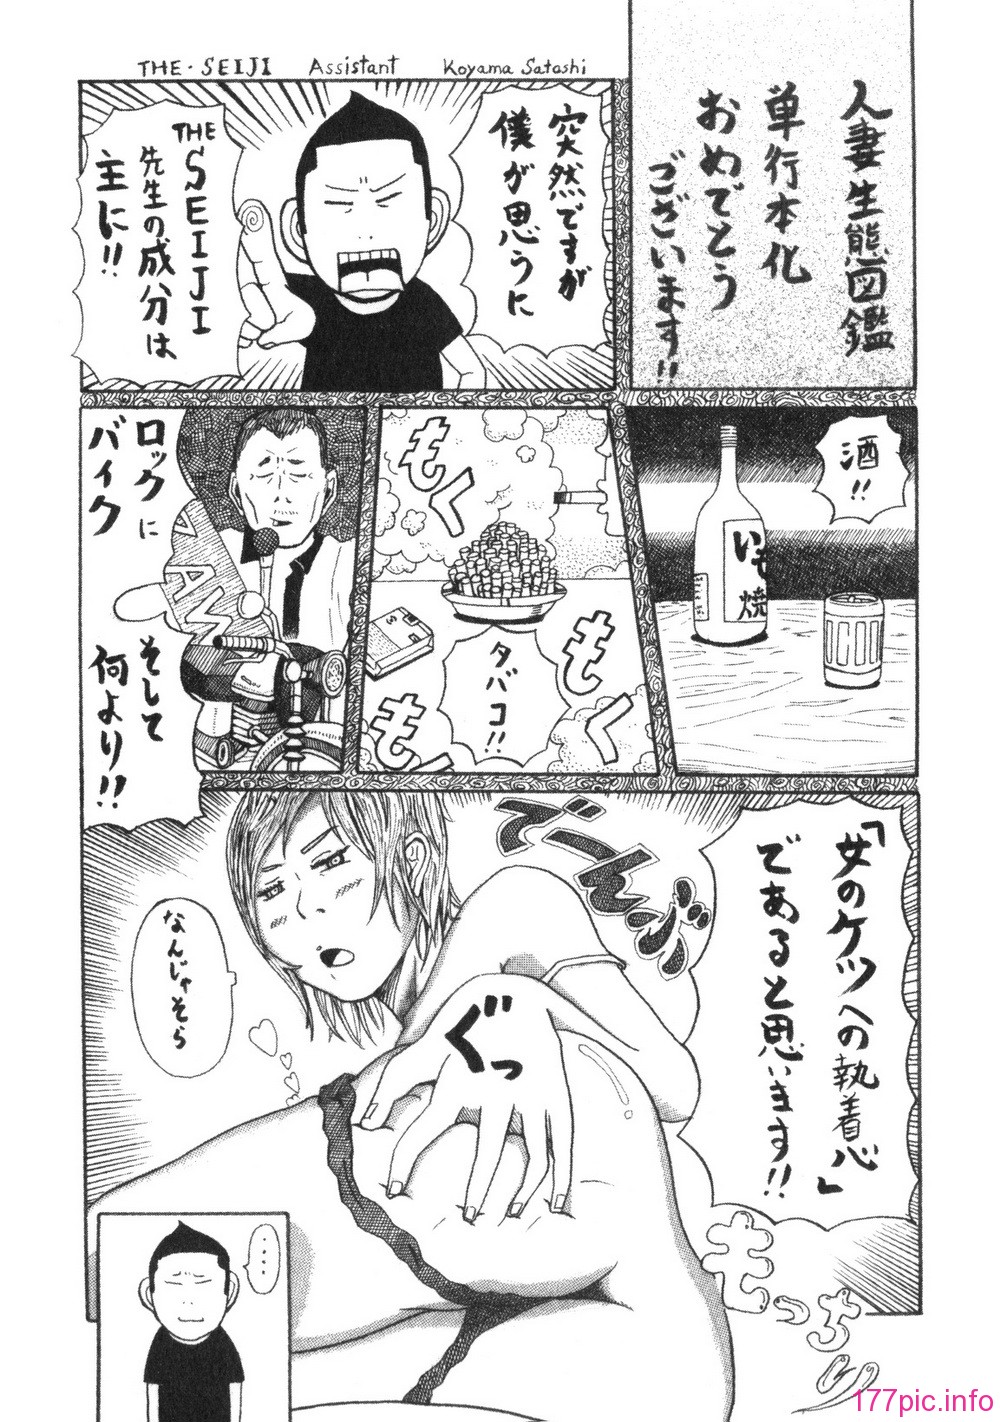 THE・SEIJI Assistant Koyama Satoshi
人妻生態図鑑
単行本化
おめでとう
ございます!!
突然ですが
僕が思うに
THE
SEIJI
先生の成分は
主に!!
酒!!
いも焼
もく
タバコ!!
もく
もく
ロックに
バイク
そして
何より!!
「女のケツへの執着心」
であると思います!!
でーんっ
なんじゃそら
ぐっ
もっちり
・・・・
177pic.info